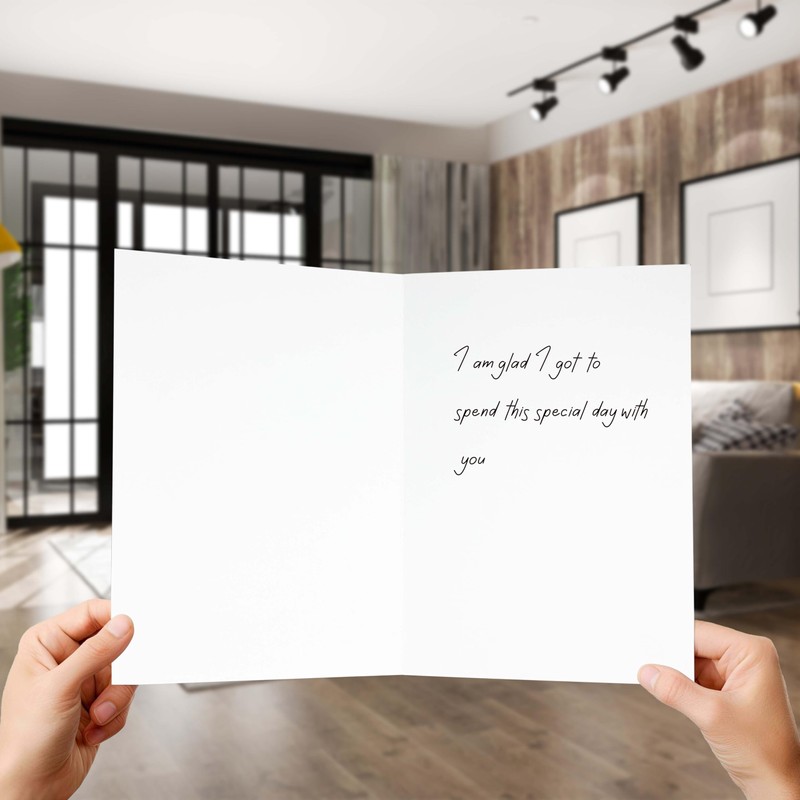 I am glad I got to
spend this special day with
you